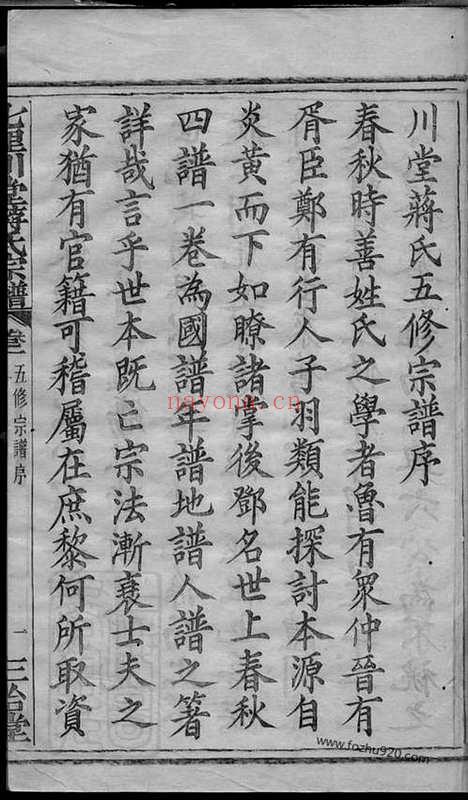 川堂蔣氏五修宗譜序
春秋時善姓氏之學者魯有衆仲晉有
胥臣鄭有行人子羽類能探討本源自
炎黃而下如瞭諸掌後鄧名世上春秋
四譜一卷為國譜年譜地譜人譜之箸
詳哉言乎世本既亡宗法漸衰士夫之
家猶有官籍可稽屬在庶黎何所取資
川堂蔣氏宗譜
五修宗譜序
一
三治堂
nayong.cn
www.fozhu920.com